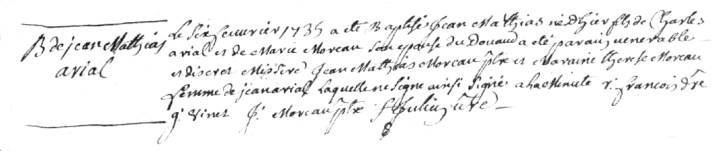 B de jean Mathias
arial
Le six feuvrier 1735 a eté Baptisé Jean Mathias né d'hier fils de Charles
arial et de Marie Moreau son epouse du a eté parain venerable
et discret Missire Jean Mathias Moreau ptre et Maraine therese Moreau
femme de jean arial Laquelle ne signe ainsi signé a la Minute r. francois dre
g. Vinet J. Moreau ptre f.